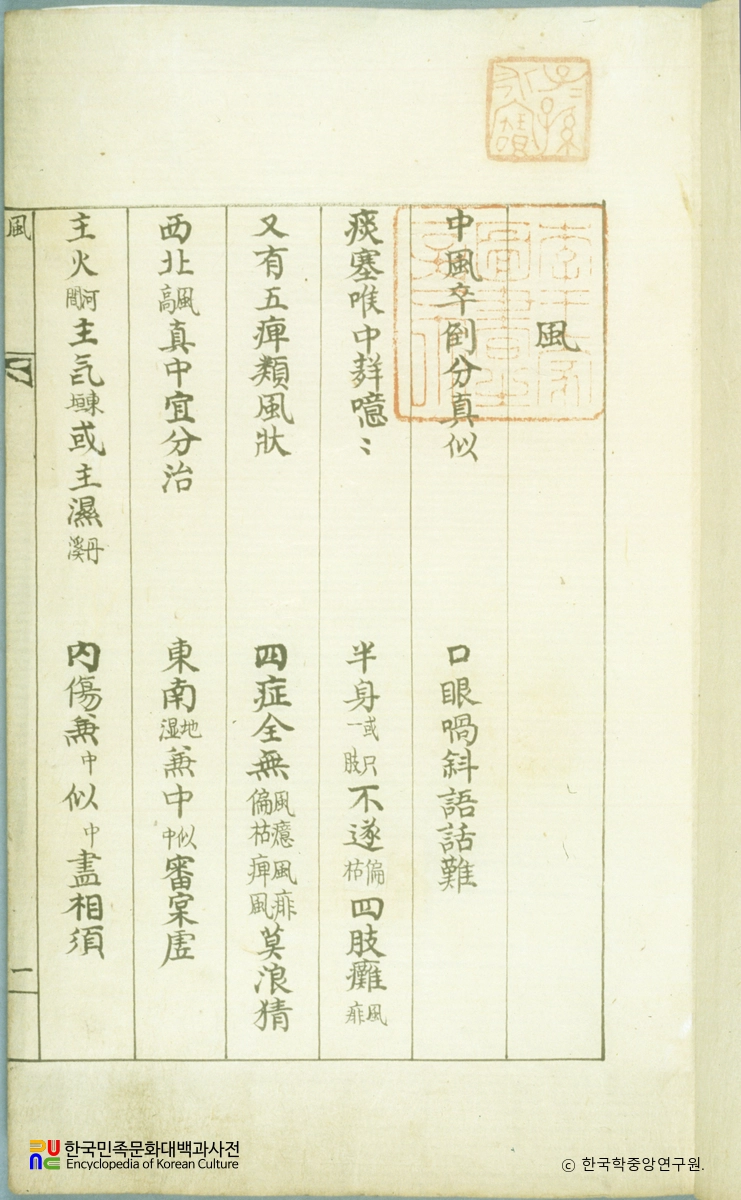 風
中風卒倒分真似 口眼喎斜語話難
痰塞喉中鼾噫〻 半身或只一肢不遂偏枯四肢癱風痱
又有五痺類風狀 四症全無風癔風痱偏枯風痺莫浪猜
西北風高真中宜分治 東南地湿兼中似中審宲虛
主火河間主気東垣或主濕丹溪 內傷兼中似中盡相須
風
一
한국민족문화대백과사전
Encyclopedia of Korean Culture
© 한국학중앙연구원.